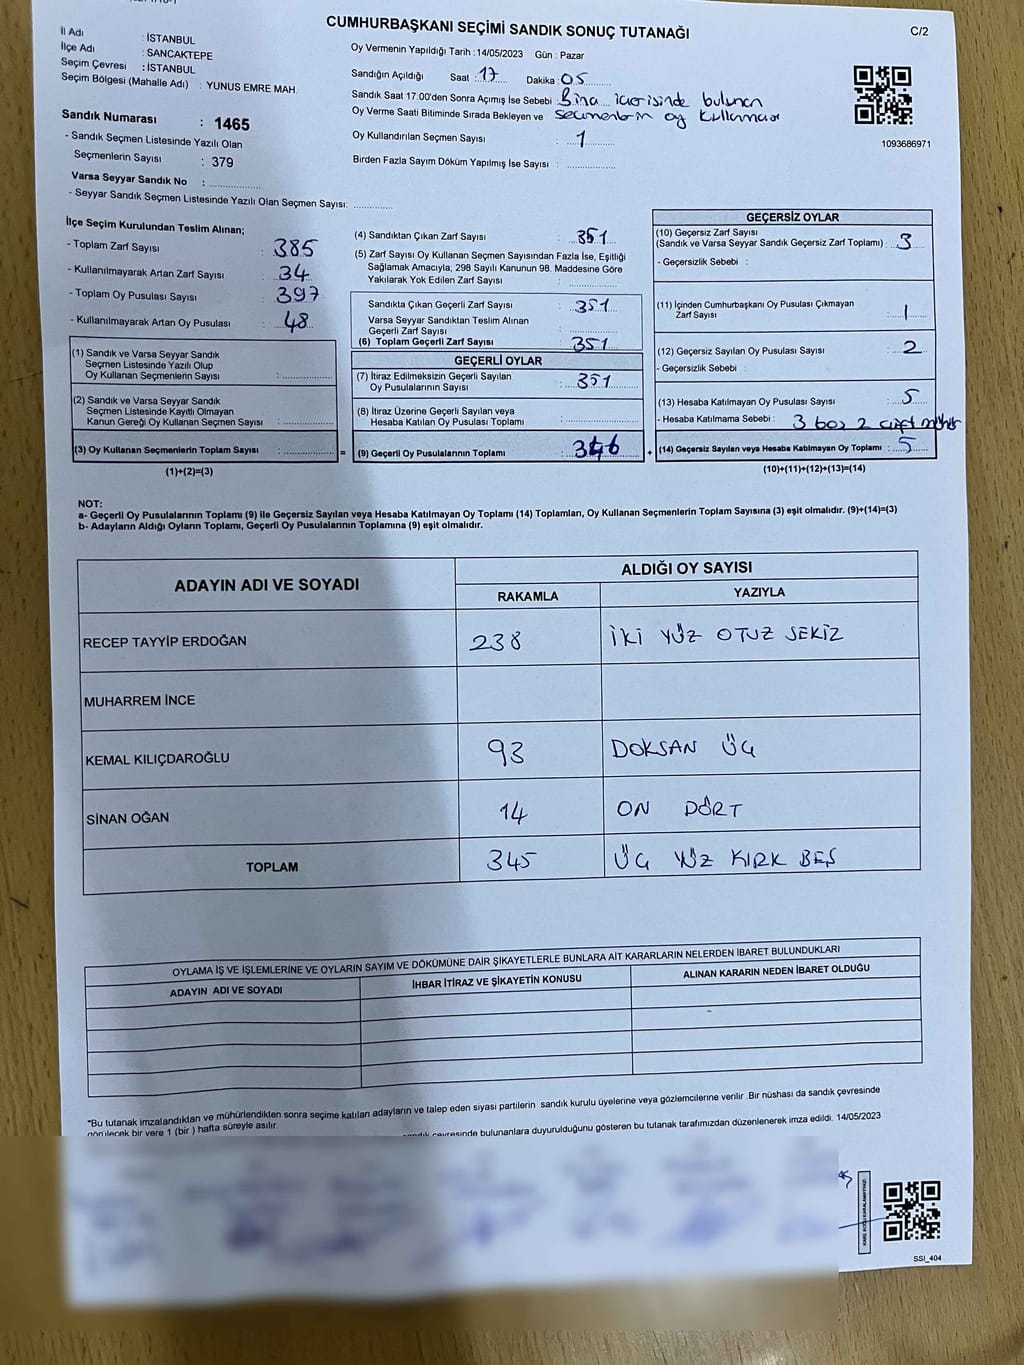 CUMHURBAŞKANI SEÇİMİ SANDIK SONUÇ TUTANAĞI
C/2
İl Adı : İSTANBUL
İlçe Adı : SANCAKTEPE
Seçim Çevresi : İSTANBUL
Seçim Bölgesi (Mahalle Adı) : YUNUS EMRE MAH.
Oy Vermenin Yapıldığı Tarih : 14/05/2023 Gün : Pazar
Sandığın Açıldığı Saat : 17 Dakika : 05
Sandık Saat 17:00'den Sonra Açımış İse Sebebi Bina içerisinde bulunan
Oy Verme Saati Bitiminde Sırada Bekleyen ve seçmenlerin oy kullanması
Oy Kullandırılan Seçmen Sayısı : 1
Birden Fazla Sayım Döküm Yapılmış İse Sayısı :
1093686971
Sandık Numarası : 1465
- Sandık Seçmen Listesinde Yazılı Olan
Seçmenlerin Sayısı : 379
Varsa Seyyar Sandık No :
- Seyyar Sandık Seçmen Listesinde Yazılı Olan Seçmen Sayısı:
İlçe Seçim Kurulundan Teslim Alınan;
- Toplam Zarf Sayısı : 385
- Kullanılmayarak Artan Zarf Sayısı : 34
- Toplam Oy Pusulası Sayısı : 397
- Kullanılmayarak Artan Oy Pusulası : 48
(1) Sandık ve Varsa Seyyar Sandık
Seçmen Listesinde Yazılı Olup
Oy Kullanan Seçmenlerin Sayısı :
(2) Sandık ve Varsa Seyyar Sandık
Seçmen Listesinde Kayıtlı Olmayan
Kanun Gereği Oy Kullanan Seçmen Sayısı :
(3) Oy Kullanan Seçmenlerin Toplam Sayısı : =
(1)+(2)=(3)
(4) Sandıktan Çıkan Zarf Sayısı : 351
(5) Zarf Sayısı Oy Kullanan Seçmen Sayısından Fazla İse, Eşitliği
Sağlamak Amacıyla, 298 Sayılı Kanunun 98. Maddesine Göre
Yakılarak Yok Edilen Zarf Sayısı :
Sandıkta Çıkan Geçerli Zarf Sayısı : 351
Varsa Seyyar Sandıktan Teslim Alınan
Geçerli Zarf Sayısı :
(6) Toplam Geçerli Zarf Sayısı 351
GEÇERLİ OYLAR
(7) İtiraz Edilmeksizin Geçerli Sayılan
Oy Pusulalarının Sayısı : 351
(8) İtiraz Üzerine Geçerli Sayılan veya
Hesaba Katılan Oy Pusulası Toplamı :
(9) Geçerli Oy Pusulalarının Toplamı : 346 +
GEÇERSİZ OYLAR
(10) Geçersiz Zarf Sayısı
(Sandık ve Varsa Seyyar Sandık Geçersiz Zarf Toplamı) : 3
- Geçersizlik Sebebi :
(11) İçinden Cumhurbaşkanı Oy Pusulası Çıkmayan
Zarf Sayısı : 1
(12) Geçersiz Sayılan Oy Pusulası Sayısı : 2
- Geçersizlik Sebebi :
(13) Hesaba Katılmayan Oy Pusulası Sayısı : 5
- Hesaba Katılmama Sebebi : 3 boş 2 çift mühür
(14) Geçersiz Sayılan veya Hesaba Katılmayan Oy Toplamı : 5
(10)+(11)+(12)+(13)=(14)
NOT:
a- Geçerli Oy Pusulalarının Toplamı (9) ile Geçersiz Sayılan veya Hesaba Katılmayan Oy Toplamı (14) Toplamları, Oy Kullanan Seçmenlerin Toplam Sayısına (3) eşit olmalıdır. (9)+(14)=(3)
b- Adayların Aldığı Oyların Toplamı, Geçerli Oy Pusulalarının Toplamına (9) eşit olmalıdır.
ADAYIN ADI VE SOYADI
ALDIĞI OY SAYISI
RAKAMLA YAZIYLA
RECEP TAYYİP ERDOĞAN 238 İKİ YÜZ OTUZ SEKİZ
MUHARREM İNCE
KEMAL KILIÇDAROĞLU 93 DOKSAN ÜÇ
SİNAN OĞAN 14 ON DÖRT
TOPLAM 345 ÜÇ YÜZ KIRK BEŞ
OYLAMA İŞ VE İŞLEMLERİNE VE OYLARIN SAYIM VE DÖKÜMÜNE DAİR ŞİKAYETLERLE BUNLARA AİT KARARLARIN NELERDEN İBARET BULUNDUKLARI
ADAYIN ADI VE SOYADI İHBAR İTİRAZ VE ŞİKAYETİN KONUSU ALINAN KARARIN NEDEN İBARET OLDUĞU
*Bu tutanak imzalandıktan ve mühürlendikten sonra seçime katılan adayların ve talep eden siyasi partilerin sandık kurulu üyelerine veya gözlemcilerine verilir .Bir nüshası da sandık çevresinde
görülecek bir yere 1 (bir ) hafta süreyle asılır.
çevresinde bulunanlara duyurulduğunu gösteren bu tutanak tarafımızdan düzenlenerek imza edildi. 14/05/2023
SSI_404